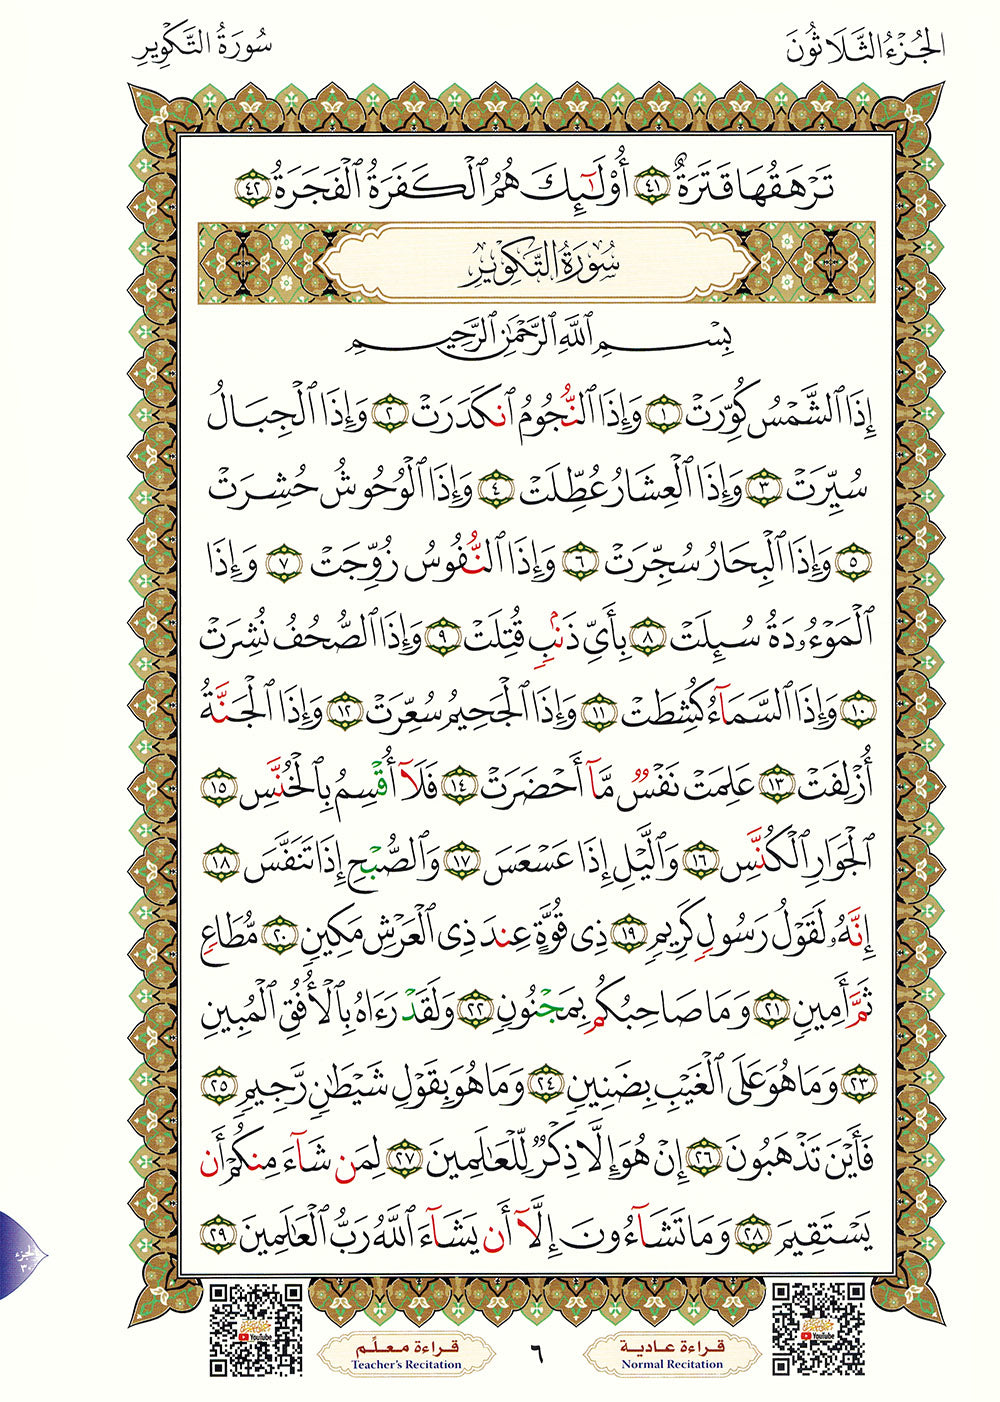 الجُزْءُ الثَّلَاثُونَ
سُورَةُ التَّكْوِيرِ
تَرْهَقُهَا قَتَرَةٌ ٤١ أُوْلَـٰٓئِكَ هُمُ ٱلْكَفَرَةُ ٱلْفَجَرَةُ ٤٢
سُورَةُ التَّكْوِيرِ
بِسْمِ ٱللَّهِ ٱلرَّحْمَٰنِ ٱلرَّحِيمِ
إِذَا ٱلشَّمْسُ كُوِّرَتْ ١ وَإِذَا ٱلنُّجُومُ ٱنكَدَرَتْ ٢ وَإِذَا ٱلْجِبَالُ
سُيِّرَتْ ٣ وَإِذَا ٱلْعِشَارُ عُطِّلَتْ ٤ وَإِذَا ٱلْوُحُوشُ حُشِرَتْ
٥ وَإِذَا ٱلْبِحَارُ سُجِّرَتْ ٦ وَإِذَا ٱلنُّفُوسُ زُوِّجَتْ ٧ وَإِذَا
ٱلْمَوْءُۥدَةُ سُئِلَتْ ٨ بِأَىِّ ذَنۢبٍ قُتِلَتْ ٩ وَإِذَا ٱلصُّحُفُ نُشِرَتْ
١٠ وَإِذَا ٱلسَّمَآءُ كُشِطَتْ ١١ وَإِذَا ٱلْجَحِيمُ سُعِّرَتْ ١٢ وَإِذَا ٱلْجَنَّةُ
أُزْلِفَتْ ١٣ عَلِمَتْ نَفْسٌ مَّآ أَحْضَرَتْ ١٤ فَلَآ أُقْسِمُ بِٱلْخُنَّسِ ١٥
ٱلْجَوَارِ ٱلْكُنَّسِ ١٦ وَٱلَّيْلِ إِذَا عَسْعَسَ ١٧ وَٱلصُّبْحِ إِذَا تَنَفَّسَ ١٨
إِنَّهُۥ لَقَوْلُ رَسُولٍ كَرِيمٍ ١٩ ذِى قُوَّةٍ عِندَ ذِى ٱلْعَرْشِ مَكِينٍ ٢٠ مُّطَاعٍ
ثَمَّ أَمِينٍ ٢١ وَمَا صَاحِبُكُم بِمَجْنُونٍ ٢٢ وَلَقَدْ رَءَاهُ بِٱلْأُفُقِ ٱلْمُبِينِ
٢٣ وَمَا هُوَ عَلَى ٱلْغَيْبِ بِضَنِينٍ ٢٤ وَمَا هُوَ بِقَوْلِ شَيْطَٰنٍ رَّجِيمٍ ٢٥
فَأَيْنَ تَذْهَبُونَ ٢٦ إِنْ هُوَ إِلَّا ذِكْرٌ لِّلْعَٰلَمِينَ ٢٧ لِمَن شَآءَ مِنكُمْ أَن
يَسْتَقِيمَ ٢٨ وَمَا تَشَآءُونَ إِلَّآ أَن يَشَآءَ ٱللَّهُ رَبُّ ٱلْعَٰلَمِينَ ٢٩
الجزء
٣٠
YouTube
قراءة عادية
Normal Recitation
٦
قراءة معلّم
Teacher's Recitation
YouTube